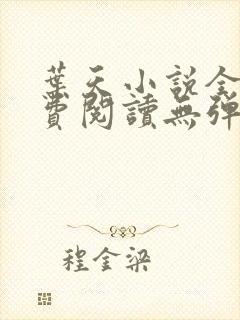 葉天小說全
費閱讀無彈
程金梁